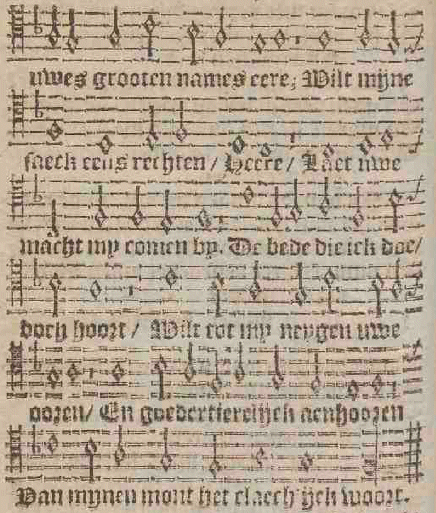 uwes grooten names eere, Wilt mijne
saeck eens rechten / Heere / Laet uwe
macht my comen by. De bede die ick doe /
doch hoort / Wilt tot my neygen uwe
ooren / En goedertierelijck aenhooren
Van mynen mont het claech'ijck woort.